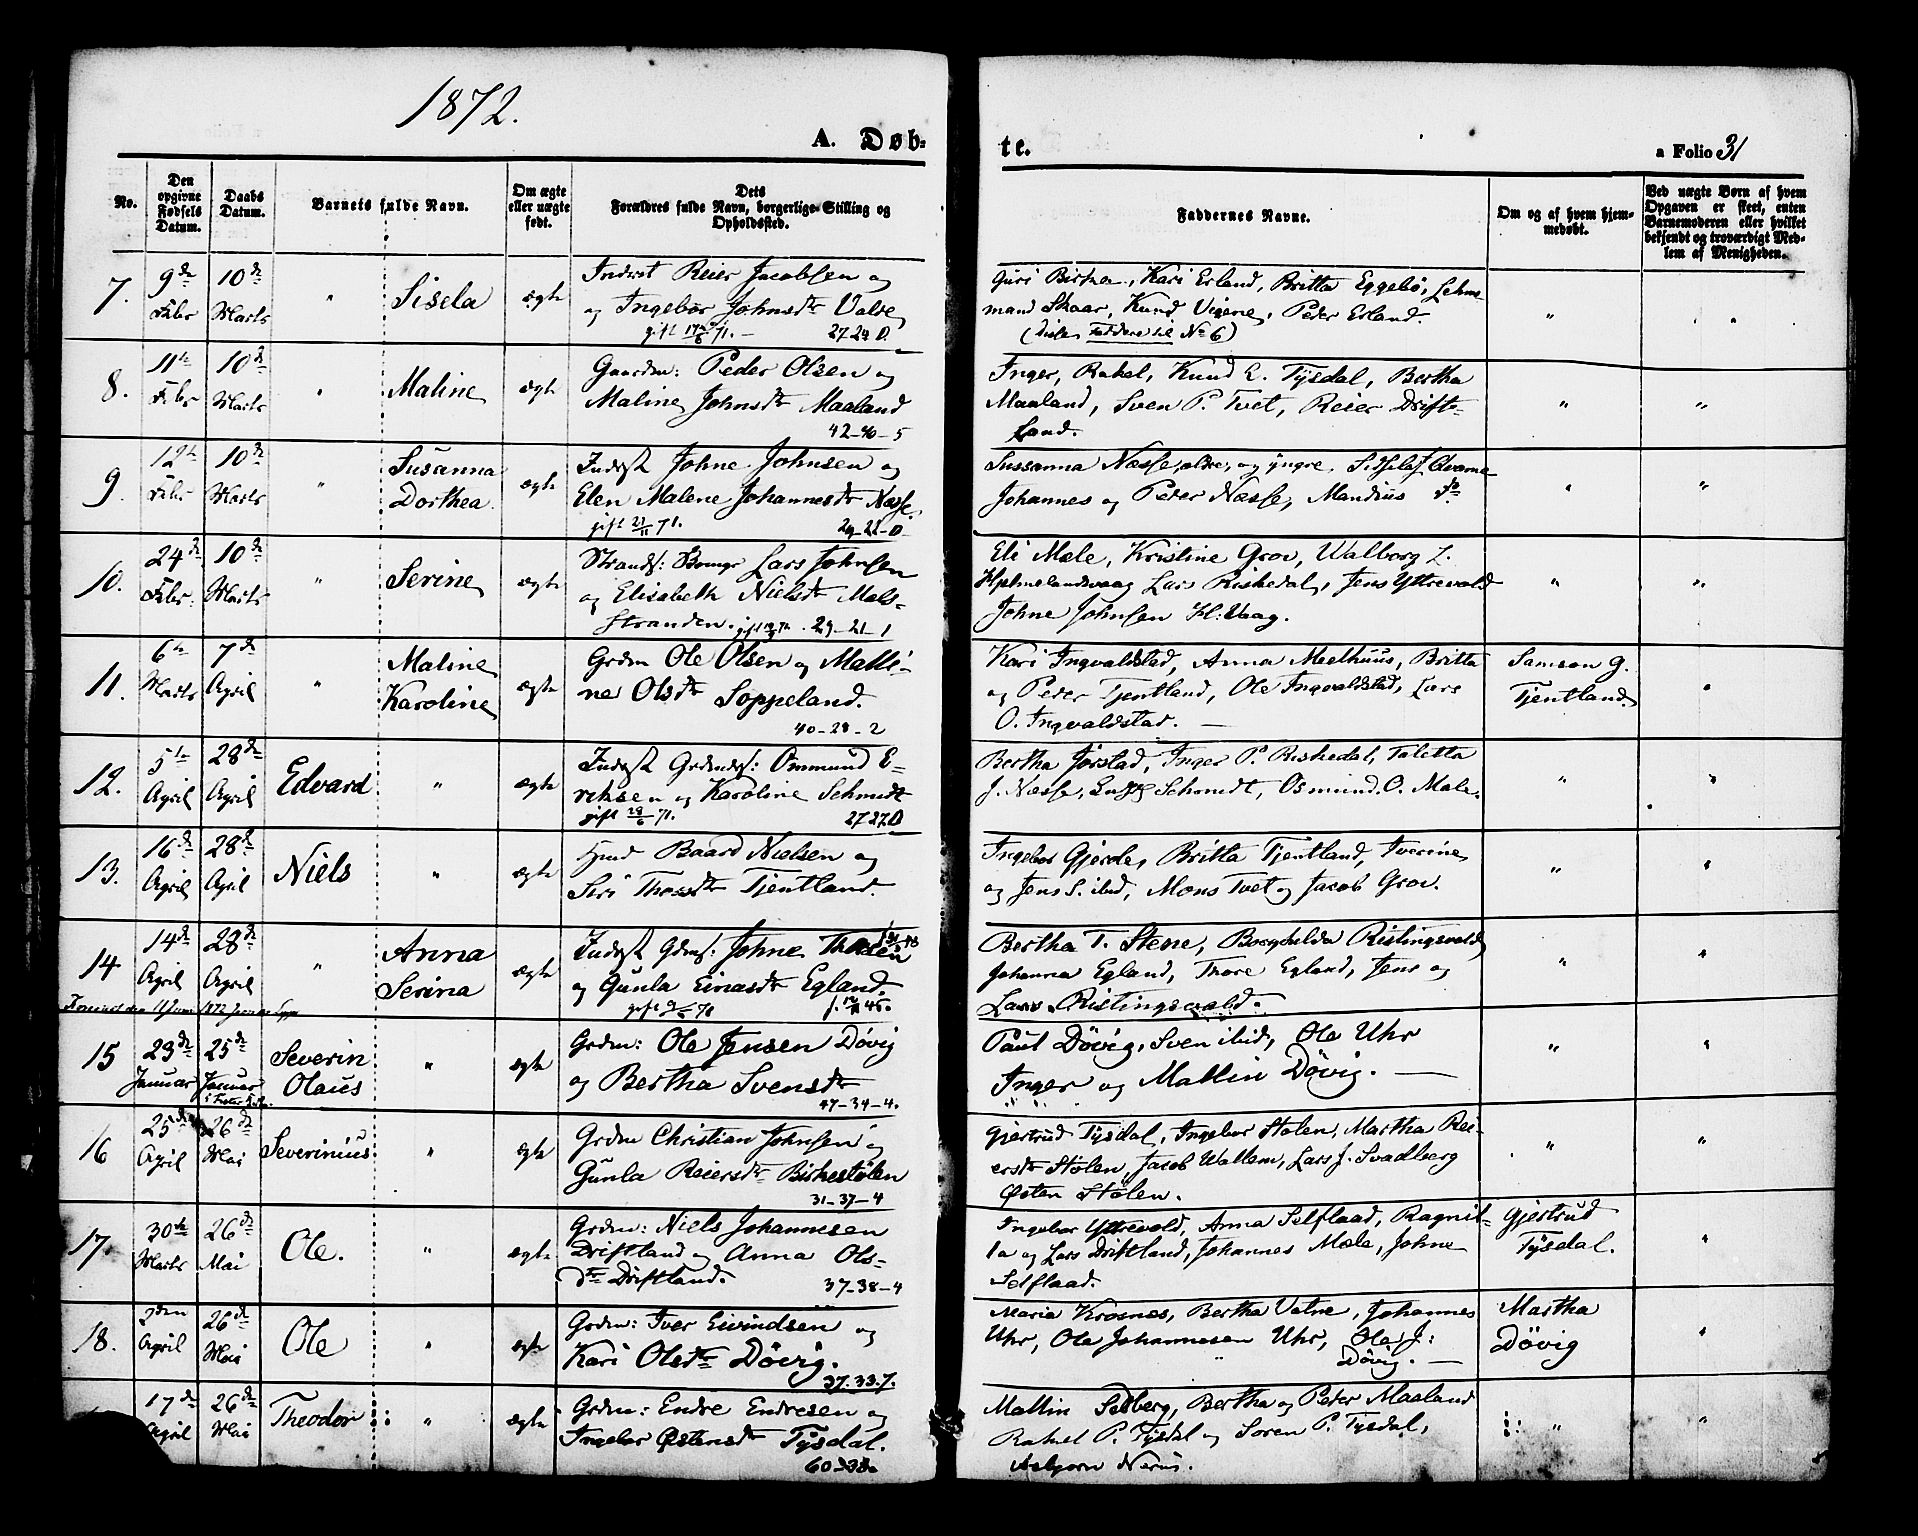 1872.
A. Døb-
te.
a Folio 31
No.
Den
opgivne
Fødsels
Datum.
Daabs
Datum.
Barnets fulde Navn.
Om ægte
eller uægte
født.
Dets
Forældres fulde Navn, borgerlige Stilling og
Opholdssted.
Faddernes Navne.
Om og af hvem hjem-
medøbt.
Ved uægte Børn af hvem
Opgaven er skeet, enten
Barnemoderen eller hvilket
bekjendt og troværdigt Med-
lem af Menigheden.
7.
9de
Febr
10de
Marts
"
Sisela
ægte
Inderst Reier Jacobsen og
og Ingebor Johnsdtr Valve
gift 71. —
Guri Birkea, Kari Erland, Britta Eggebø, Lehne-
mand Skaar, Knud Vigene, Peder Erland.
(disse Faddere til No 6)
"
"
8.
11te
Febr
10de
Marts
"
Maline
ægte
Gaardm: Peder Olsen og
Maline Johnsdtr Maaland
42-40-5
Inger, Rakel, Knud L. Tysdal, Bertha
Maaland, Sven P. Tvet, Reier Drift-
land.
"
"
9.
12te
Febr
10de
Marts
"
Susanna
Dorthea
ægte
Inderst Johne Johnsen og
Elen Malene Johannesdtr Næsse
gift 71.
29-21-0
Sussanna Næsse, ældre, og yngre, Sidsela
Johannes og Peder Næsse, Mandius do
"
"
10.
24de
Febr:
10de
Marts
"
Serine
ægte
Strands: Lars Johnsen
og Elisabeth Nielsdtr Mæle-
stranden. 29-21-1
Eli Mæle, Kristine Grov, Walborg L.
Hjelmelandsvaag Lars Riskedal, Jens Yttrevold
Johne Johnsen Hl: Vaag.
"
"
11.
6te
Marts
7de
April
"
Maline
Karoline
ægte
Grdm Ole Olsen og Malli-
ne Olsdtr Soppeland.
40-28-2
Kari Ingvaldstad, Anna Meelhuus, Britta
og Peder Tjentland, Ole Ingvaldstad, Lars
O. Ingvaldstad. —
Samson G.
Tjentland.
"
12.
5te
April
28de
April
Edvard
"
ægte
Inderst Grdmds: Ommund E-
riksen og Karoline Schmidt
gift 28/6 71.
27 27.0
Bertha Jørstad, Inger P. Riskedal, Taletta
J. Næsse, Schmidt, Osmund O. Mæle.
"
"
13.
16de
April
28de
April
Niels
"
ægte
Baard Nielsen og
Siri Thorsdtr Tjentland.
Ingebor Gjerde, Britta Tjentland, Iverine
og Jens S. ibid, Mons Tvet og Jacob Grov.
"
"
14
14de
April
28de
April
"
Anna
Serina
ægte
Inderst Gdms: Johne Thorsen
og Gunla Einarsdtr Egland
Bertha T. Stene, Borghilda Ristingsvold
Johanna Egland, Thore Egland, Jens og
Lars Ristingsvold.
"
"
15
23de
Januar
25de
Januar
Severin
Olaus
"
ægte
Grdm: Ole Jensen Døvig
og Bertha Svensdtr
47-34-4.
Paul Døvig, Sven ibid, Ole Uhr
Inger og Mallin Døvig. —
"
"
16
25de
April
26de
Mai
Severinius
"
ægte
Grdm Christian Johnsen og
Gunla Reiersdtr Birkestølen
31-37-4
Gjertrud Tysdal, Ingebor Stølen, Martha Rei-
ersdtr Stølen, Jacob Wallem, Lars J. Svadberg
Østen Stølen.
"
"
17.
30te
Marts
26de
Mai
Ole.
"
ægte
Grdm: Niels Johannesen
Driftland og Anna Ols-
dtr Driftland.
37-38-4
Ingebor Yttrevold, Anna Selflaad, Ragnil-
la og Lars Driftland, Johannes Mæle, Johne
Selflaad.
Gjertrud
Tysdal.
"
18.
2den
April
26de
Mai
Ole
"
ægte
Grdm: Iver Eivindsen og
Kari Olsdtr Døvig.
37.33.7.
Maria Krosnes, Bertha Vatne, Johannes
Uhr, Ole Johannesen Uhr, Ole J:
Døvig. —
Martha
Døvig
"
17de
April
26de
Mai
Theodor
"
ægte
Grdm: Endre Endresen og
Ingebor Østensdtr Tysdal.
60-38.
Mallin Sedberg, Bertha og Peder Maaland
Rakel P. Tysdal og Soren P. Tysdal,
Asbjørn Nerus.
"
"